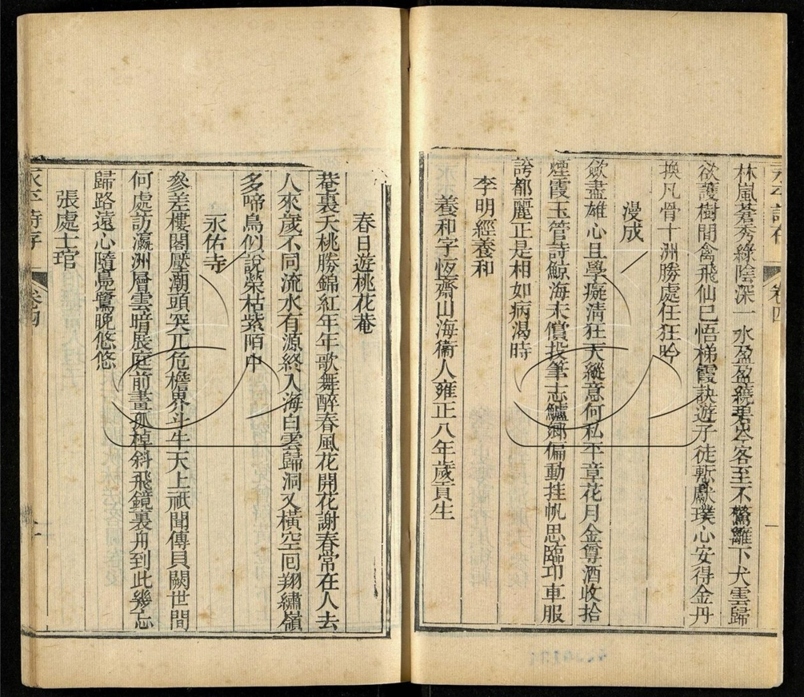 永平詩存 卷四
林嵐蒼秀綠陰深一水盈盈繞碧岑客至不驚籬下犬雲歸
欲護樹間禽飛仙已悟梯霞訣遊子徒慙獻璞心安得金丹
換凡骨十洲勝處任狂吟
漫成
斂盡雄心且學癡清狂天縱意何私平章花月金尊酒收拾
煙霞玉管詩鯨海未償投筆志鱸鄉偏動挂帆思臨卭車服
誇都麗正是相如病渴時
李明經養和
養和字恆齋山海衞人雍正八年歲貢生
春日遊桃花菴
菴裏夭桃勝錦紅年年歌舞醉春風花開花謝春常在人去
人來歲不同流水有源終入海白雲歸洞又橫空囘翔繡嶺
多啼鳥似說榮枯紫陌中
永佑寺
參差樓閣壓潮頭突兀危檐界斗牛天上祇聞傳貝闕世間
何處訪瀛洲層雲暗展庭前畫孤棹斜飛鏡裏舟到此幾忘
歸路遠心隨鳧鷖晚悠悠
張處士琯
永平詩存 卷四